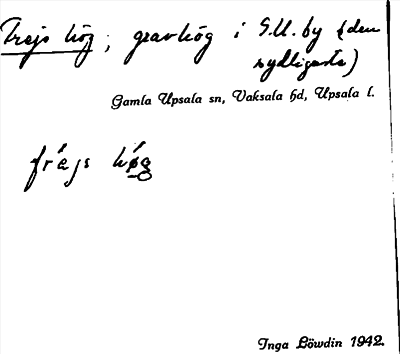 Frejs hög; gravhög i G.U. by (den
sydligaste)
Gamla Upsala sn, Vaksala hd, Upsala l.
fräjs høg
Inga Löwdin 1942.